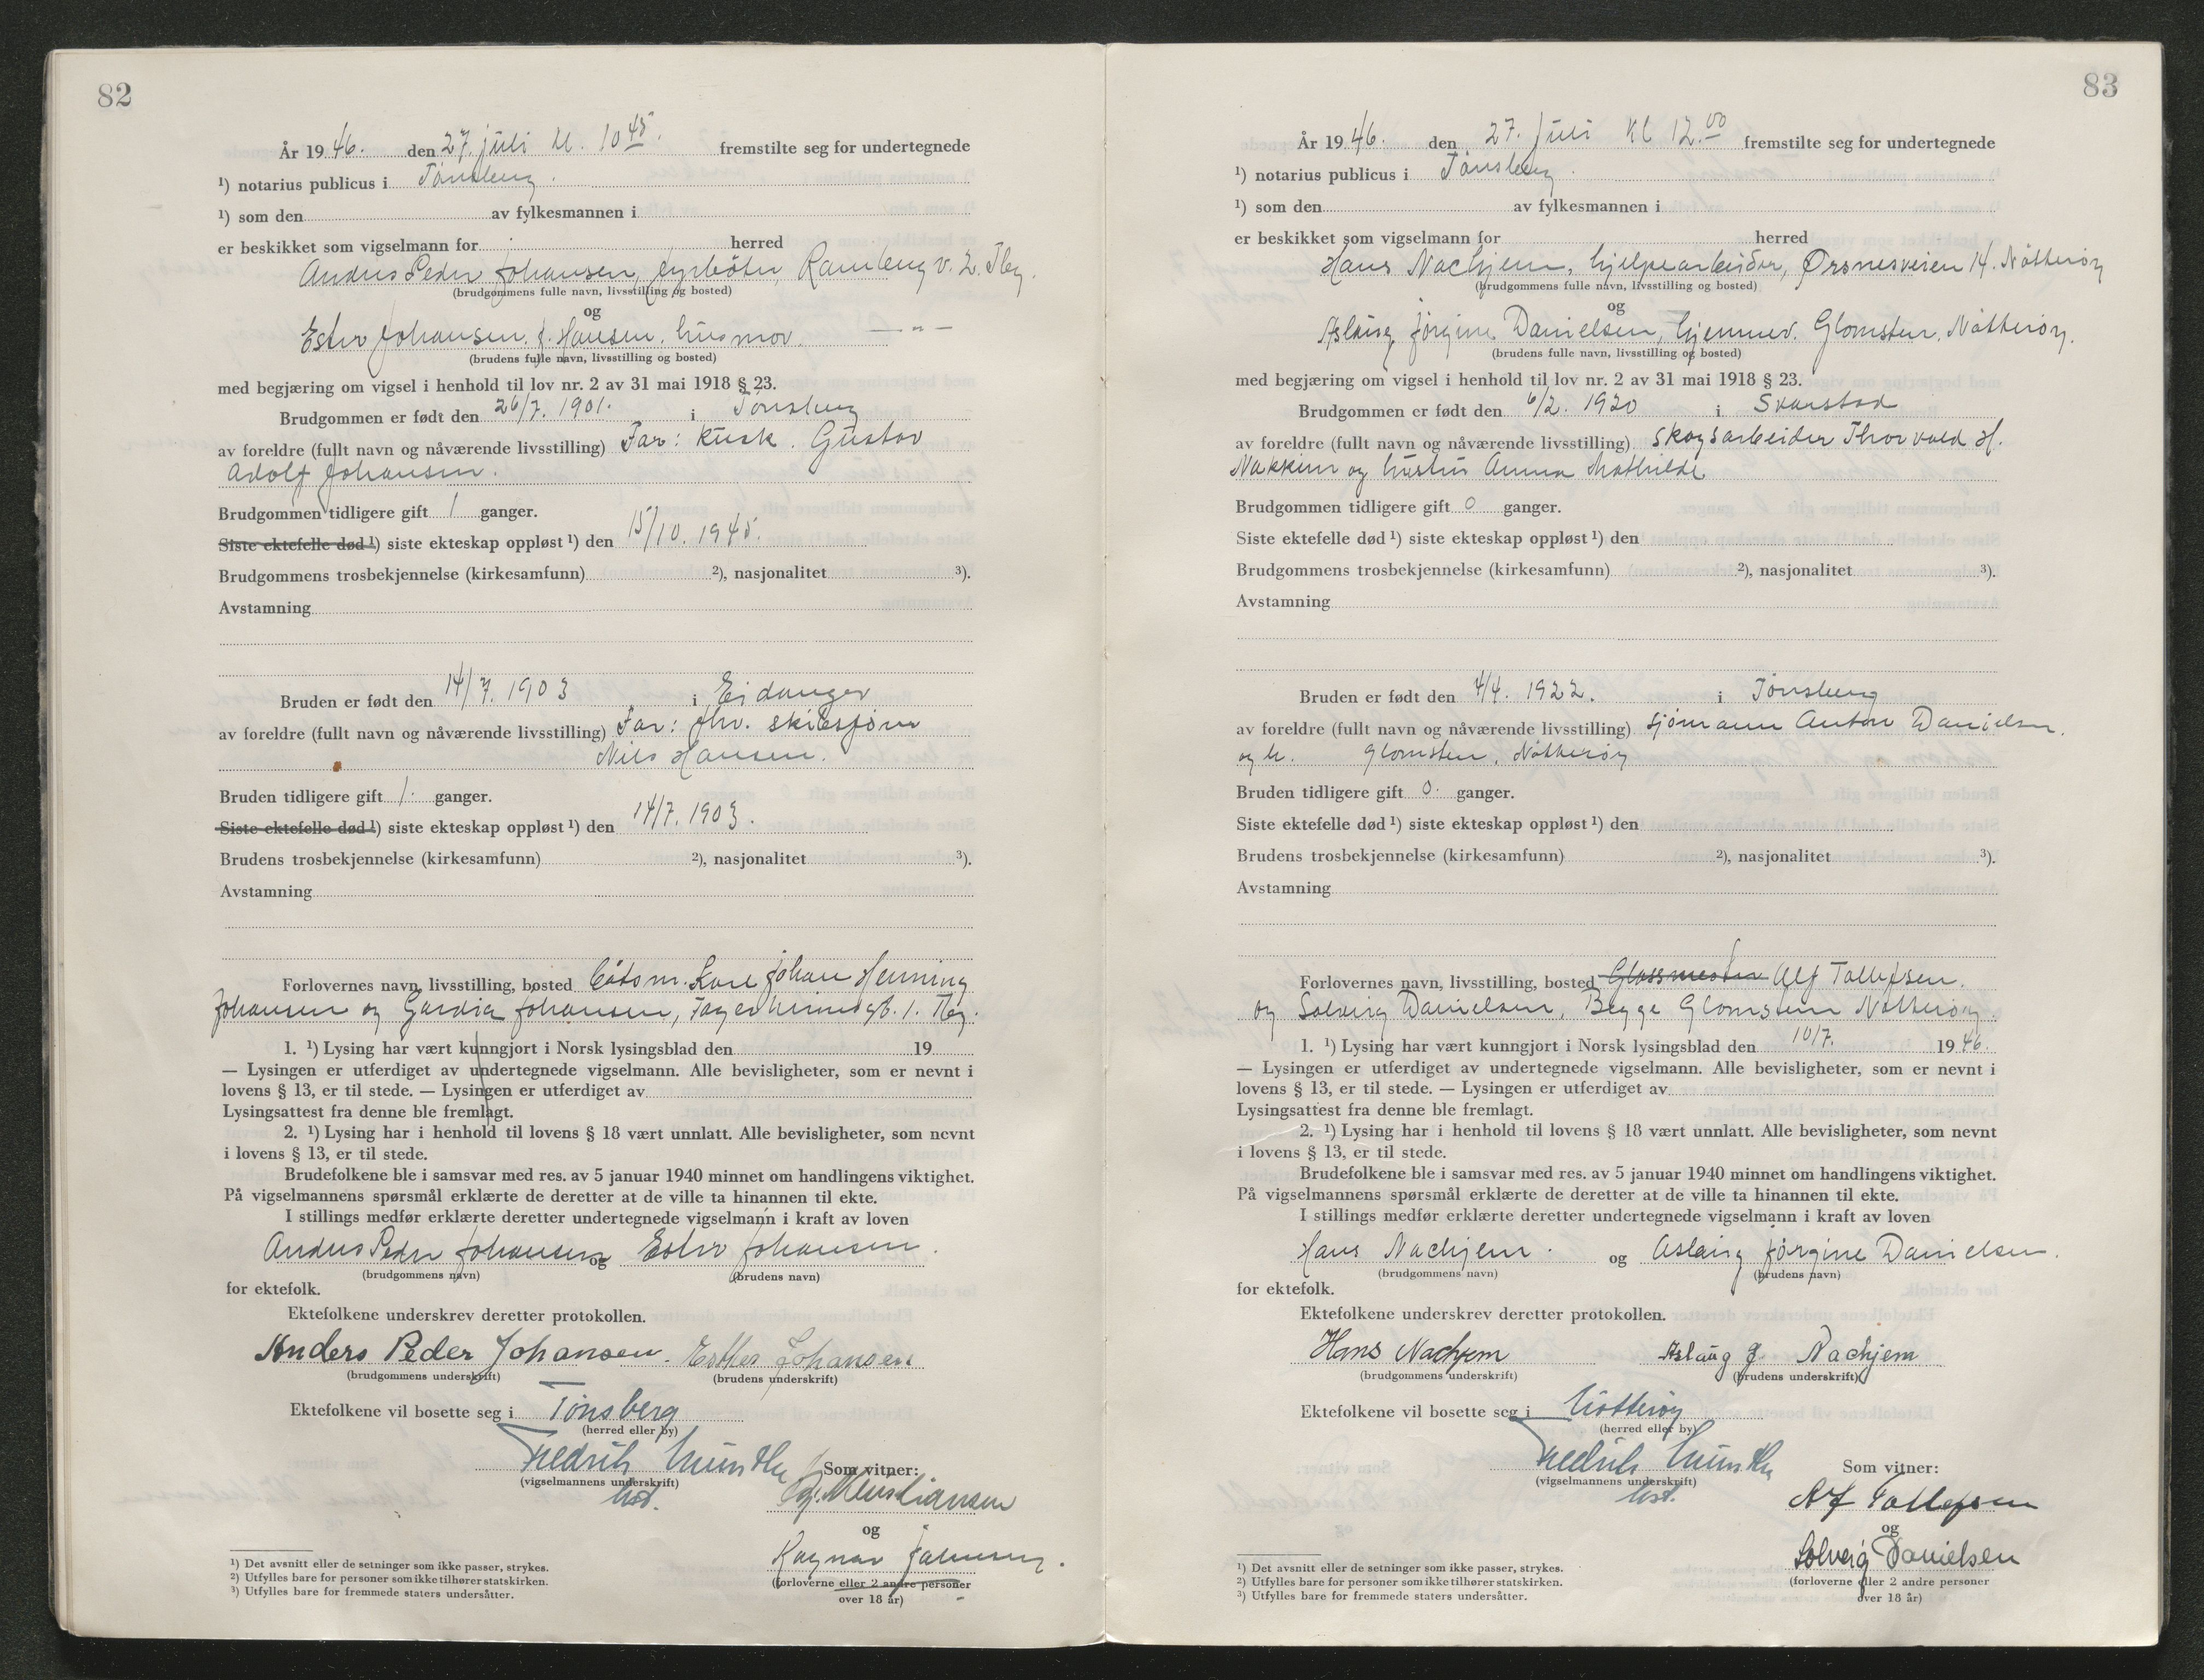 82
År 19 46. den 27. juli kl. 10 45. fremstilte seg for undertegnede
¹) notarius publicus i Tønsberg.
¹) som den av fylkesmannen i
er beskikket som vigselmann for herred
Anders Peder Johansen, fyrbøter, Rambergv. 2. Tbg.
(brudgommens fulle navn, livsstilling og bosted)
og
Ester Johansen, f. Hansen, husmor. — " —
(brudens fulle navn, livsstilling og bosted)
med begjæring om vigsel i henhold til lov nr. 2 av 31 mai 1918 § 23.
Brudgommen er født den 26/7. 1901. i Tønsberg
av foreldre (fullt navn og nåværende livsstilling) Far: kusk. Gustav
Adolf Johansen.
Brudgommen tidligere gift 1 ganger.
Siste ektefelle død ¹) siste ekteskap oppløst ¹) den 15/10. 1945.
Brudgommens trosbekjennelse (kirkesamfunn) ²), nasjonalitet ³).
Avstamning
Bruden er født den 14/7. 1903 i Eidanger
av foreldre (fullt navn og nåværende livsstilling) Far: fhv. skibstjøm
Nils Hansen.
Bruden tidligere gift 1. ganger.
Siste ektefelle død ¹) siste ekteskap oppløst ¹) den 14/7. 1903.
Brudens trosbekjennelse (kirkesamfunn) ²), nasjonalitet ³).
Avstamning
Forlovernes navn, livsstilling, bosted Båtsm. Karl Johan Henning
Johansen og Johansen, Fagerheimsgt. 1. Tbg.
1. ¹) Lysing har vært kunngjort i Norsk lysingsblad den 19
— Lysingen er utferdiget av undertegnede vigselmann. Alle bevisligheter, som er nevnt i
lovens § 13, er til stede. — Lysingen er utferdiget av
Lysingsattest fra denne ble fremlagt.
2. ¹) Lysing har i henhold til lovens § 18 vært unnlatt. Alle bevisligheter, som nevnt
i lovens § 13, er til stede.
Brudefolkene ble i samsvar med res. av 5 januar 1940 minnet om handlingens viktighet.
På vigselmannens spørsmål erklærte de deretter at de ville ta hinannen til ekte.
I stillings medfør erklærte deretter undertegnede vigselmann i kraft av loven
Anders Peder Johansen og Ester Johansen.
(brudgommens navn) (brudens navn)
for ektefolk.
Ektefolkene underskrev deretter protokollen.
Anders Peder Johansen. Esther Johansen
(brudgommens underskrift) (brudens underskrift)
Ektefolkene vil bosette seg i Tønsberg
(herred eller by)
Fredrik Münster Som vitner:
(vigselmannens underskrift)
Christiansen
og
Ragnar
(forloverne eller 2 andre personer
over 18 år)
¹) Det avsnitt eller de setninger som ikke passer, strykes.
²) Utfylles bare for personer som ikke tilhører statskirken.
³) Utfylles bare for fremmede staters undersåtter.
83
År 19 46. den 27. juli kl 12.00 fremstilte seg for undertegnede
¹) notarius publicus i Tønsberg.
¹) som den av fylkesmannen i
er beskikket som vigselmann for herred
Hans Nachjem, hjelpearbeider, Ørsnesveien 14. Nøtterøy
(brudgommens fulle navn, livsstilling og bosted)
og
Aslaug Jørgine Danielsen, hjemmev. Glomsten, Nøtterøy.
(brudens fulle navn, livsstilling og bosted)
med begjæring om vigsel i henhold til lov nr. 2 av 31 mai 1918 § 23.
Brudgommen er født den 6/2. 1920 i Svarstad
av foreldre (fullt navn og nåværende livsstilling) skogsarbeider Thorvald H.
Nakkim og hustru Anna Mathilde
Brudgommen tidligere gift 0 ganger.
Siste ektefelle død ¹) siste ekteskap oppløst ¹) den
Brudgommens trosbekjennelse (kirkesamfunn) ²), nasjonalitet ³).
Avstamning
Bruden er født den 4/4. 1922. i Tønsberg
av foreldre (fullt navn og nåværende livsstilling) sjømann Anton Danielsen.
og h. Glomsten, Nøtterøy
Bruden tidligere gift 0. ganger.
Siste ektefelle død ¹) siste ekteskap oppløst ¹) den
Brudens trosbekjennelse (kirkesamfunn) ²), nasjonalitet ³).
Avstamning
Forlovernes navn, livsstilling, bosted Glassmester Alf Tollefsen.
og Solveig Danielsen, Begge Glomsten Nøtterøy.
1. ¹) Lysing har vært kunngjort i Norsk lysingsblad den 10/7. 19 46.
— Lysingen er utferdiget av undertegnede vigselmann. Alle bevisligheter, som er nevnt i
lovens § 13, er til stede. — Lysingen er utferdiget av
Lysingsattest fra denne ble fremlagt.
2. ¹) Lysing har i henhold til lovens § 18 vært unnlatt. Alle bevisligheter, som nevnt
i lovens § 13, er til stede.
Brudefolkene ble i samsvar med res. av 5 januar 1940 minnet om handlingens viktighet.
På vigselmannens spørsmål erklærte de deretter at de ville ta hinannen til ekte.
I stillings medfør erklærte deretter undertegnede vigselmann i kraft av loven
Hans Nachjem. og Aslaug Jørgine Danielsen.
(brudgommens navn) (brudens navn)
for ektefolk.
Ektefolkene underskrev deretter protokollen.
Hans Nachjem Aslaug J. Nachjem
(brudgommens underskrift) (brudens underskrift)
Ektefolkene vil bosette seg i Nøtterøy
(herred eller by)
Fredrik Münster Som vitner:
(vigselmannens underskrift)
Alf Tollefsen
og
Solveig Danielsen
(forloverne eller 2 andre personer
over 18 år)
¹) Det avsnitt eller de setninger som ikke passer, strykes.
²) Utfylles bare for personer som ikke tilhører statskirken.
³) Utfylles bare for fremmede staters undersåtter.